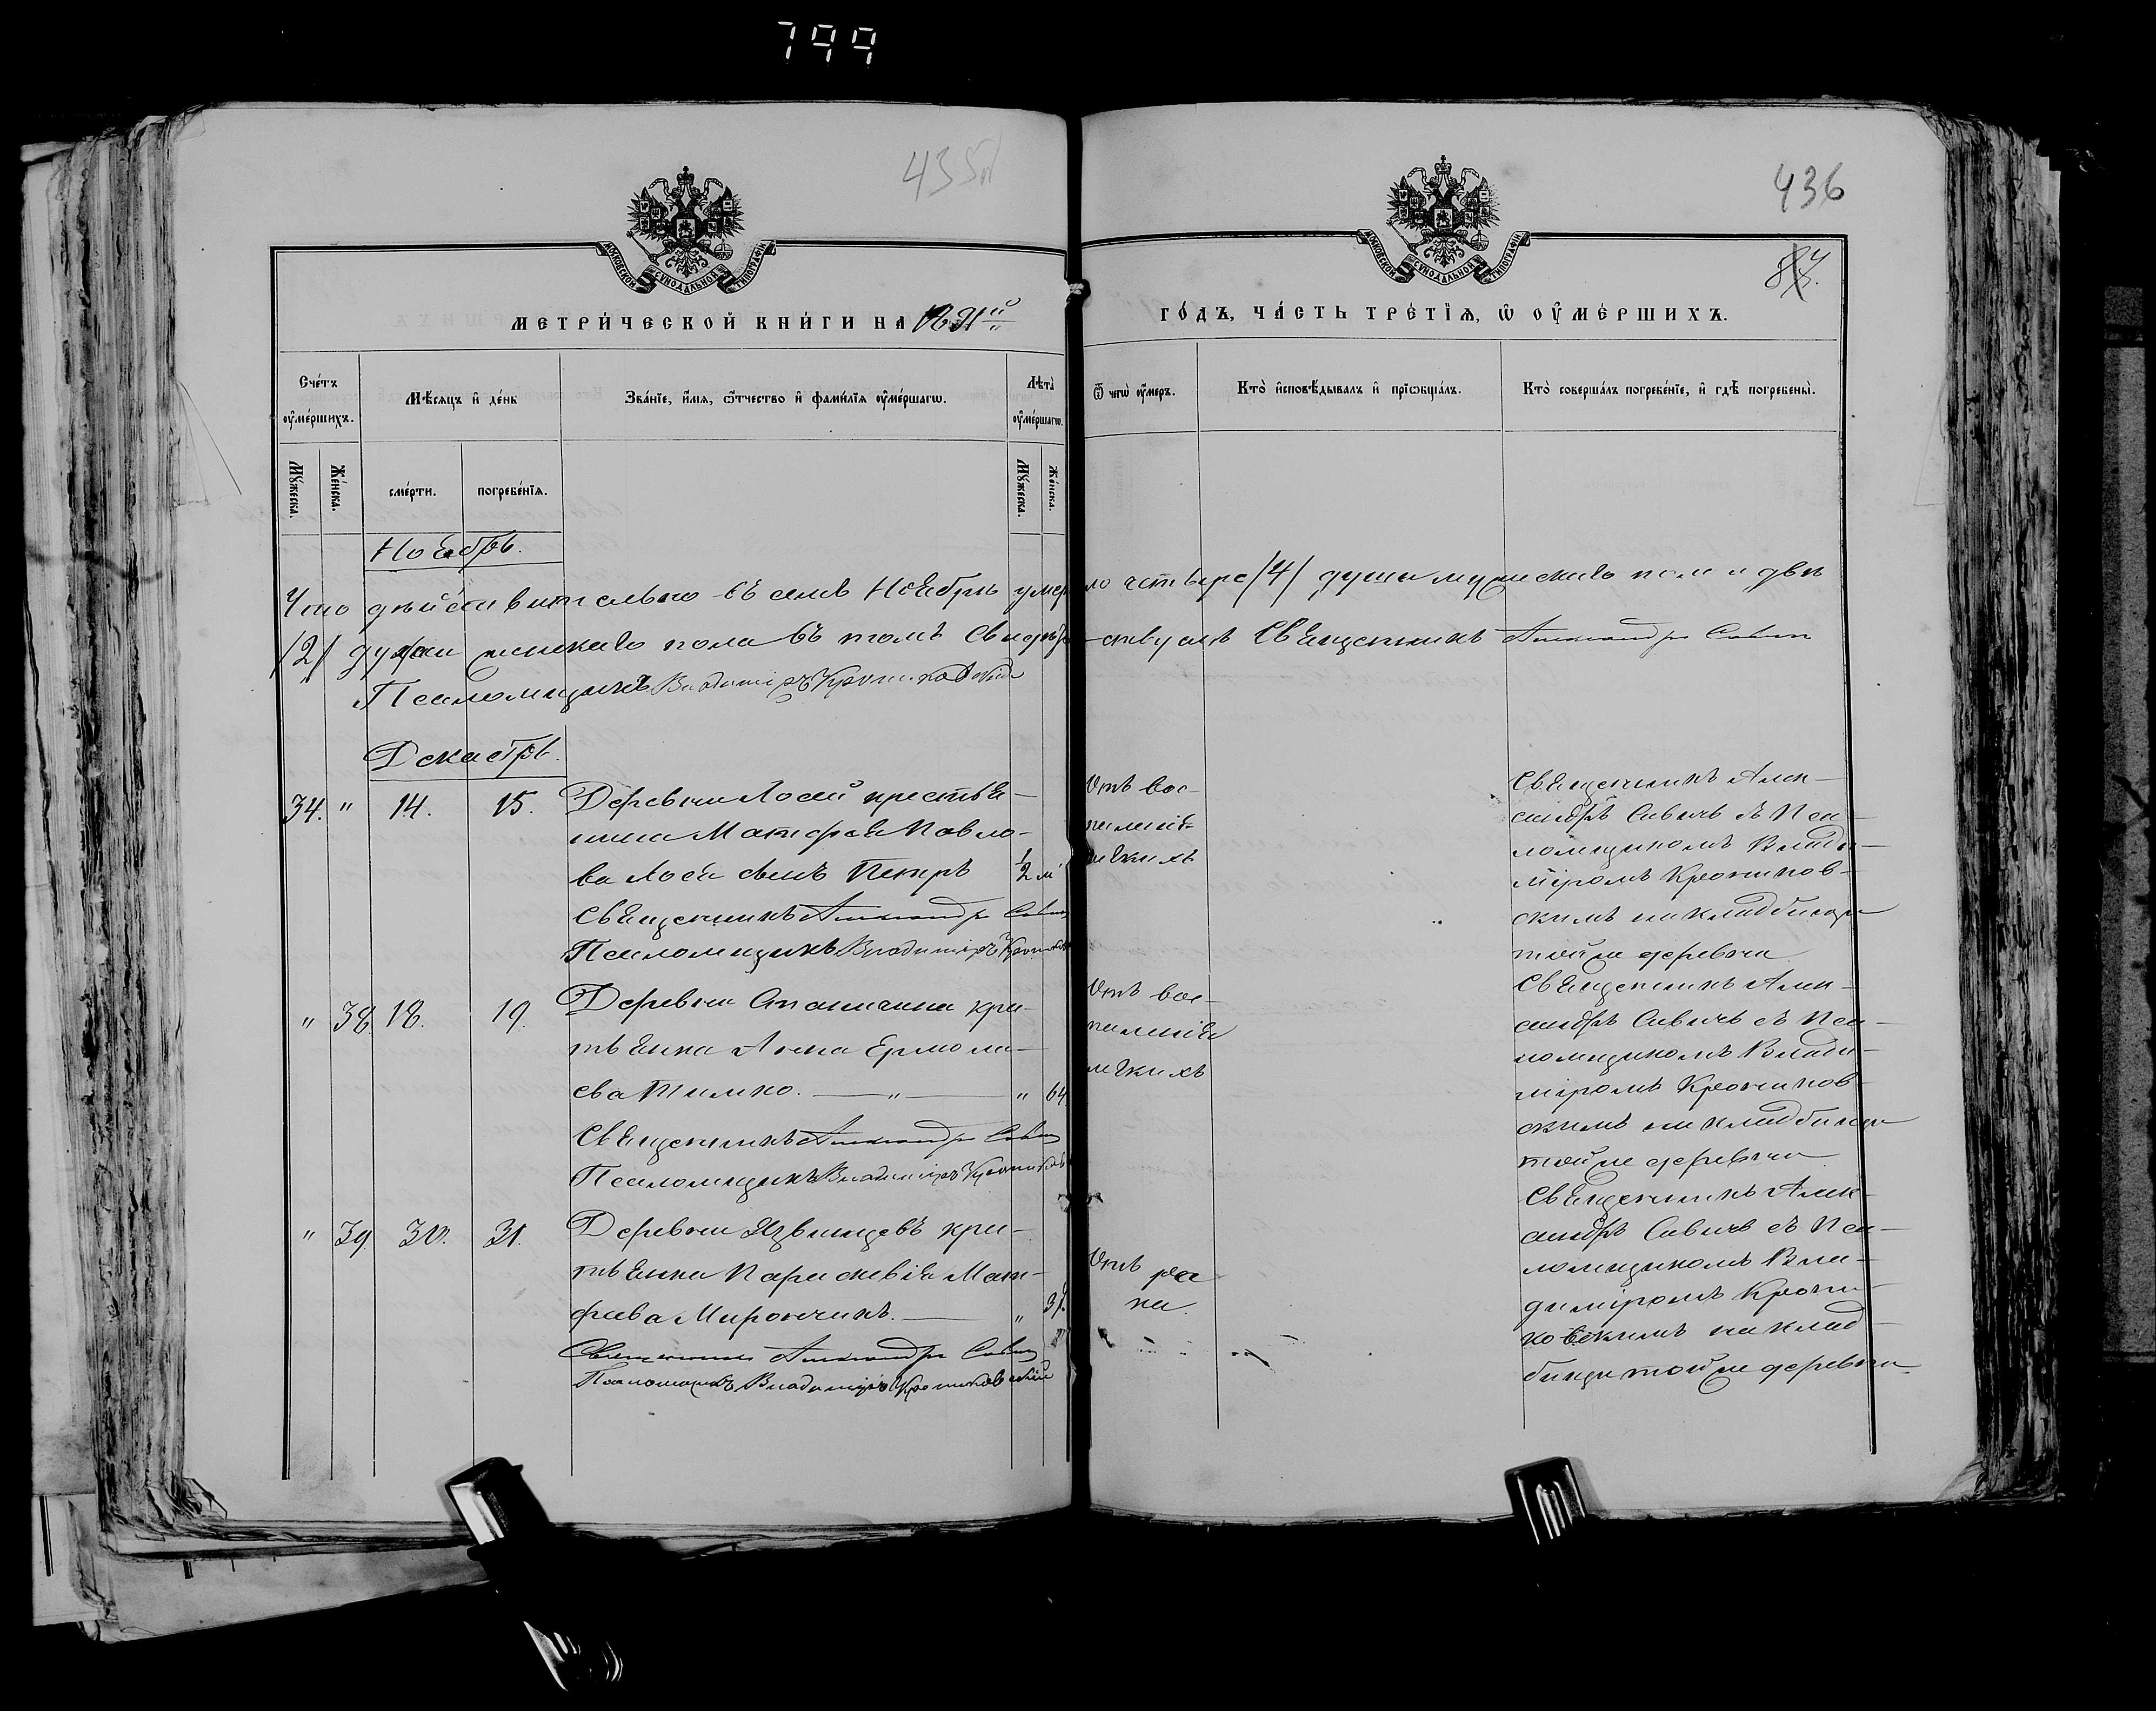 799
435
436
МОСКОВСКОЙ СѴНОДАЛЬНОЙ ТИПОГРАФІИ
МОСКОВСКОЙ СѴНОДАЛЬНОЙ ТИПОГРАФІИ
МЕТРИ́ЧЕСКОЙ КНИ́ГИ НА 1891й
ГО́ДЪ, ЧА́СТЬ ТРЕ́ТЇѦ, Ѡ҆ ОУ҆МЕ́РШИХЪ.
Сче́тъ оу҆ме́ршихъ.
Мѣ́сѧцъ и҆ де́нь
Зва́нїе, и҆́мѧ, ѻ҆́тчество и҆ фами́лїѧ оу҆ме́ршагѡ.
Лѣта̀ оу҆ме́ршагѡ.
Ѿ чегѡ̀ оу҆́меръ.
Кто̀ и҆сповѣ́дывалъ и҆ прїѡбща́лъ.
Кто̀ соверша́лъ погребе́нїе, и҆ гдѣ̀ погребены̀.
Мꙋ́жеска.
Же́нска.
сме́рти.
погребе́нїѧ.
Мꙋ́жеска.
Же́нска.
Ноябрь.
Что дѣйствительно въ семъ Ноябрѣ умерло четыре /4/ души мужескаго пола и двѣ
/2/ души женскаго пола въ томъ свидѣтельствуемъ Священникъ Александръ Савичъ
Псаломщикъ Владиміръ Крониковскій
Декабрь.
34. " 14. 15. Деревни Лосей крестья-
нина Матфея Павло-
ва Лося сынъ Петръ ½ м
Священникъ Александръ Савичъ
Псаломщикъ Владиміръ
Отъ вос-
паленія
легкихъ
Священникъ Алек-
сандръ Савичъ съ Пса-
ломщикомъ Влади-
міромъ Кроников-
скимъ на кладбищѣ
той же деревни
" 38 18. 19. Деревни кре-
тьянка Анна Ермола-
ева Тимко. " 64
Священникъ Александръ Савичъ
Псаломщикъ Владиміръ
Отъ вос-
паленія
легкихъ
Священникъ Алек-
сандръ Савичъ съ Пса-
ломщикомъ Влади-
міромъ Кроников-
скимъ на кладбищѣ
той же деревни
" 39. 30. 31. Деревни Язвинцевъ кре-
тьянка Параскевія Мат-
феева Мирончикъ. "
Священникъ Александръ Савичъ
Псаломщикъ Владиміръ Крониковскій
Отъ ра
ка.
Священникъ Алек-
сандръ Савичъ съ Пса-
ломщикомъ Вла-
диміромъ Крони-
ковскимъ на клад-
бищѣ той же деревни